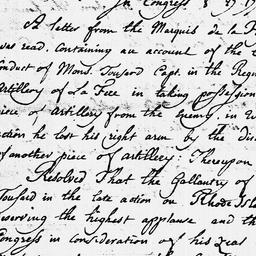 In Congress
A letter from the Marquis de la F
was read, containing an account of the
Conduct of Mons. Tousard Capt. in the Reg
Artillery of La Fere in taking possession
piece of Artillery from the Enemy, in w
action he lost his right arm by the dis
of another piece of artillery: Thereupon
Resolved That the Gallantry of
Tousard in the late action on Rhode Isl
deserving the highest applause and th
Congress in consideration of his zeal